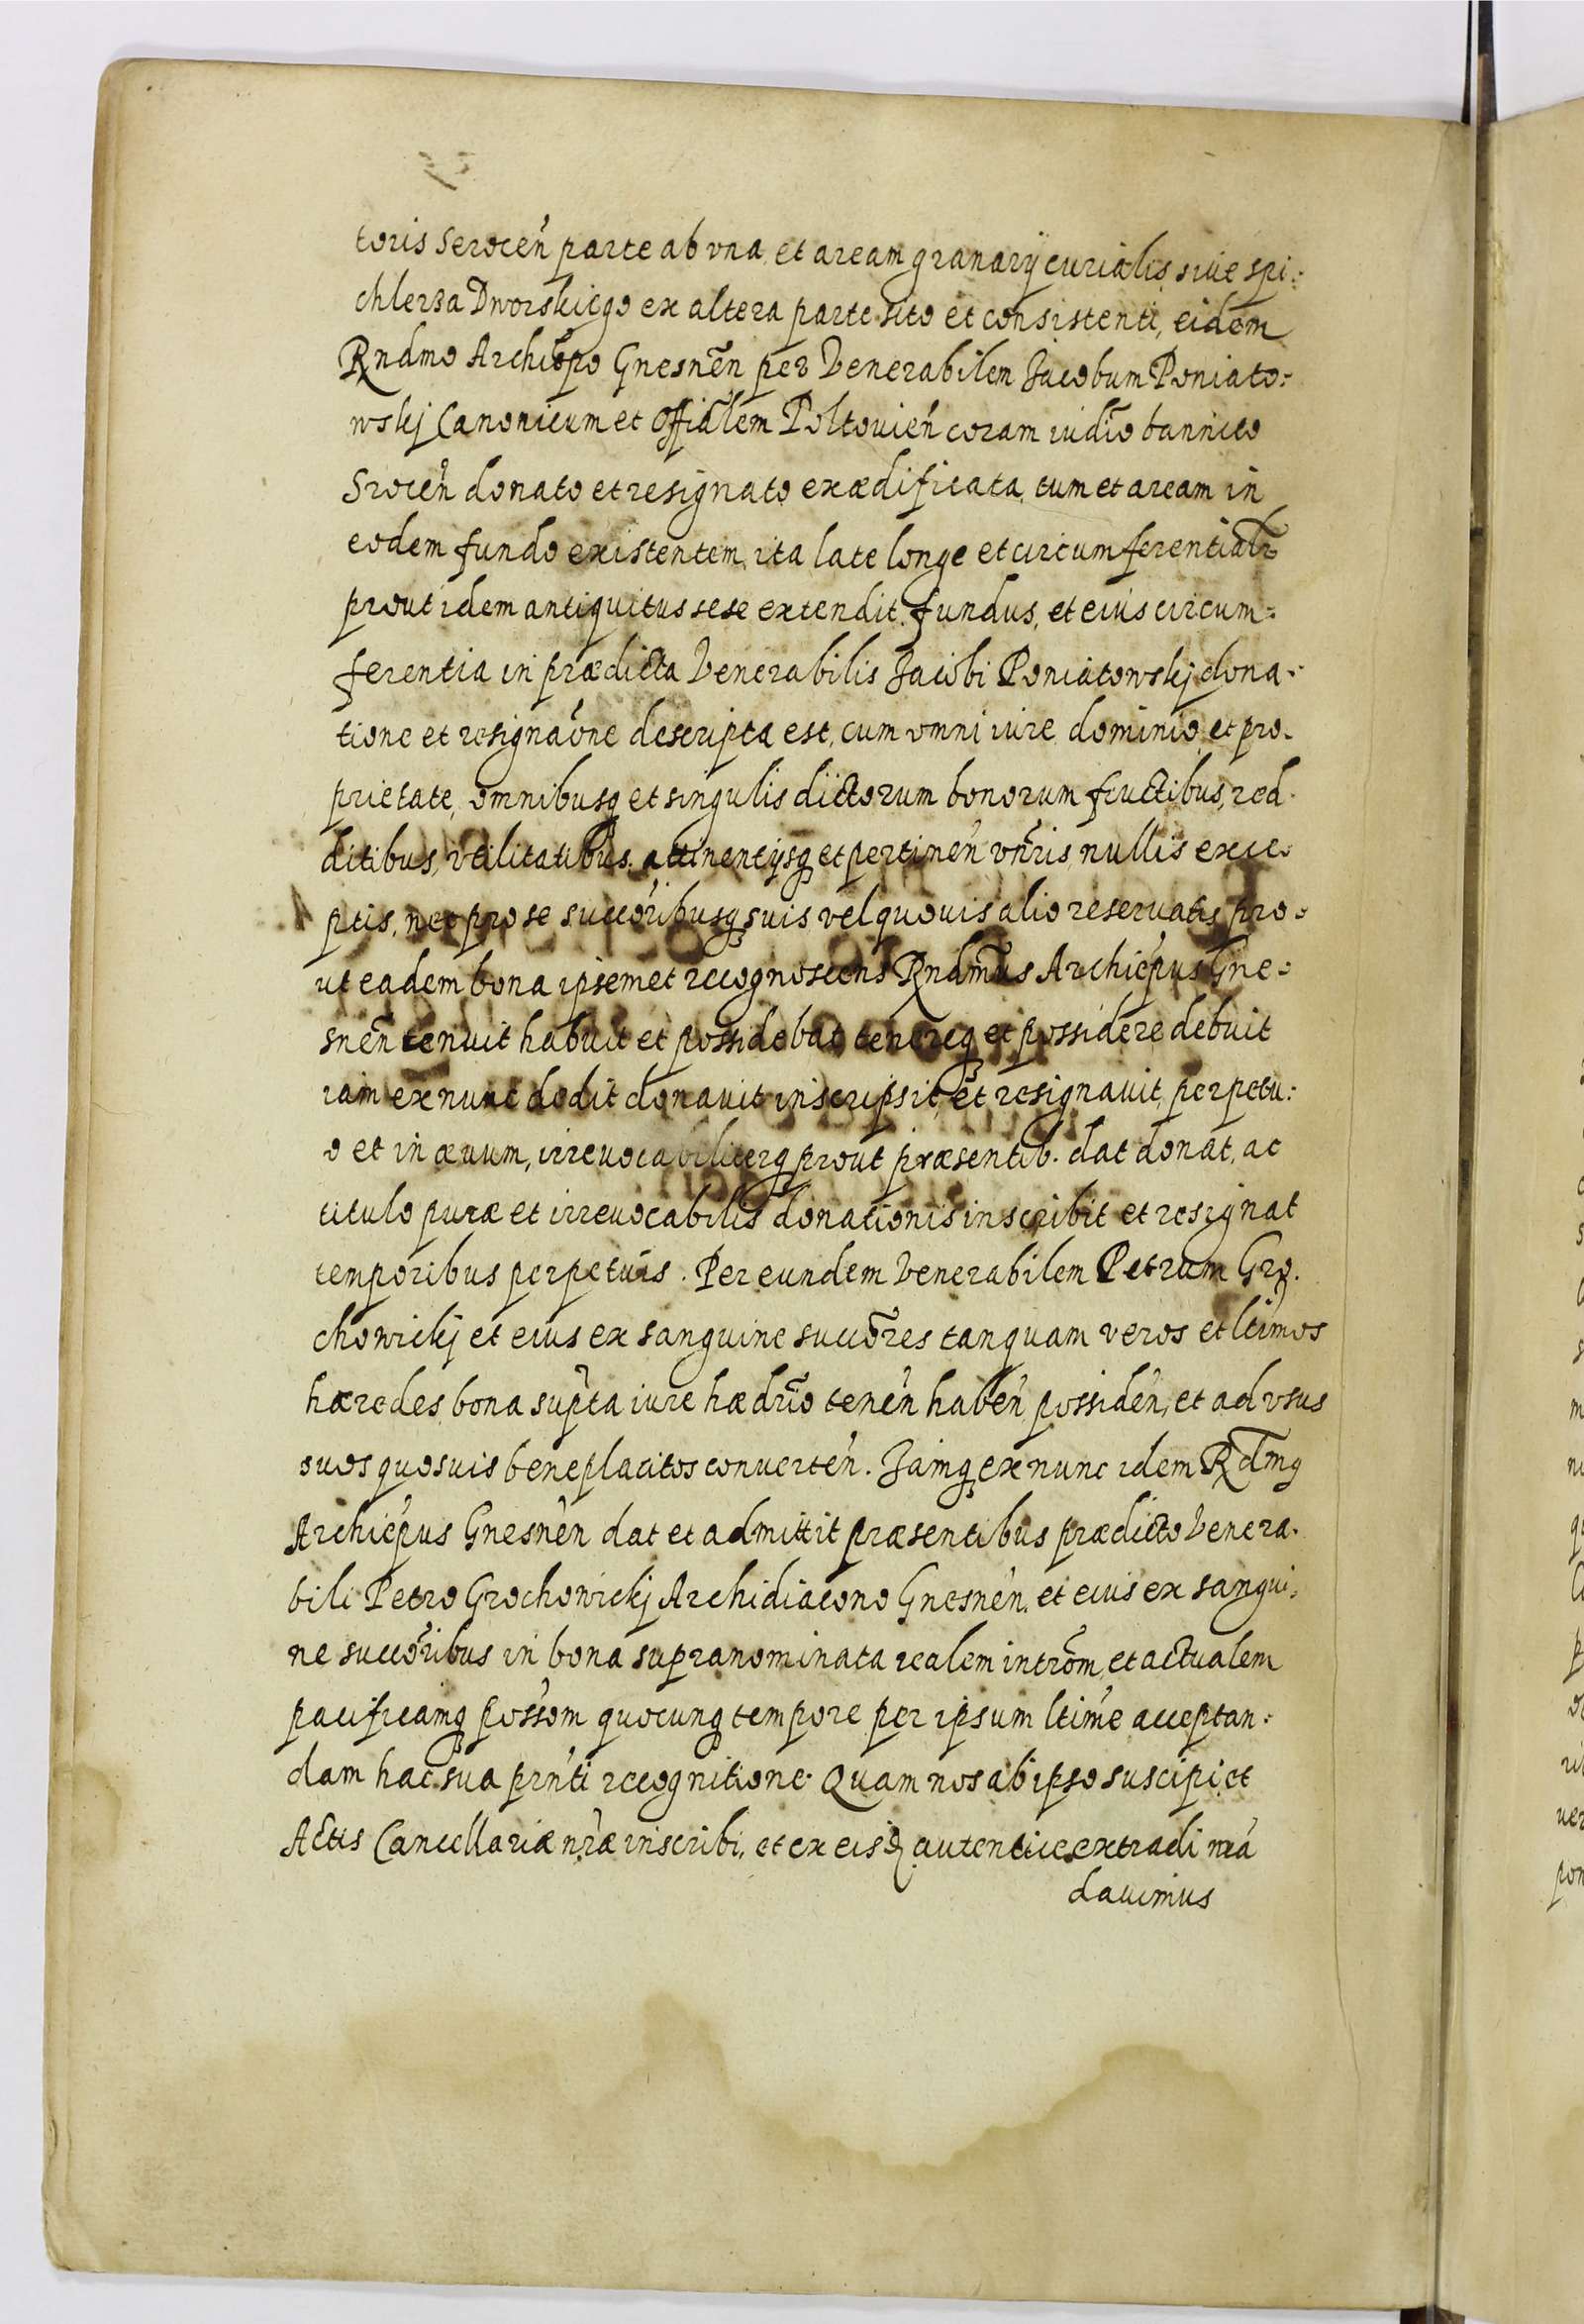 toris Serocen̄ parte ab vna, et aream granarÿ curialis, siue spi:
chlerza Dworskiego ex altera parte sito et consistenti, eidem
Rndmo Archiep̄o Gnesnen̄ per Venerabilem Jacobum Poniato:
wskj Canonicum et Offiālem Poltouien̄ coram iudīo bannito
Srocen̄ donato et resignato exædificata, tum et aream in
eodem fundo existentem, ita late longe et circumferentialr̄
prout idem antiquitus sese extendit fundus, et eius circum:
ferentia in prædicta Venerabilis Jacobi Poniatowskj dona:
tione et resignaōne descripta est, cum omni iure dominio, et pro-
prietate, omnibusq et singulis dictorum bonorum fructibus, red-
ditibus, vtilitatibus, attinentÿsq et pertinen̄ vn̄ris, nullis exce-
ptis, nec pro se succoribusq suis vel quouis alio reseruatis, pro-
ut eadem bona ipsemet recognoscens Rndmus Archiep̄us Gne-
snen̄ tenuit habuit et possidebat, tenereq et possidere debuit
iam ex nunc dedit donauit inscripsit, et resignauit, perpetu:
o et in æuum, irreuocabiliterq prout præsentib. dat donat, ac
titulo puræ et irreuocabilis donationis inscribit et resignat
temporibus perpetuis. Per eundem Venerabilem Petrum Gro-
chowickj et eius ex sanguine succōres tanquam veros et ltimos
hæredes bona sup̄ta iure hædrīo tenen̄ haben̄ possiden̄, et ad vsus
suos quosuis beneplacitos conuerten̄. Jamq ex nunc idem Rdm̄q
Archiep̄us Gnesnen̄ dat et admittit præsentibus prædicto Venera-
bili Petro Grochowickj Archidiacono Gnesnen̄. et eius ex sangui-
ne succōribus in bona supranominata realem introm̄, et actualem
pacificamq possom̄ quocunq tempore per ipsum ltime acceptan:
dam hac sua prn̄ti recognitione. Quam nos ab ipso suscipi, et
Actis Cancellariæ nr̄æ inscribi, et ex eisd autentice extradi mā
dauimus